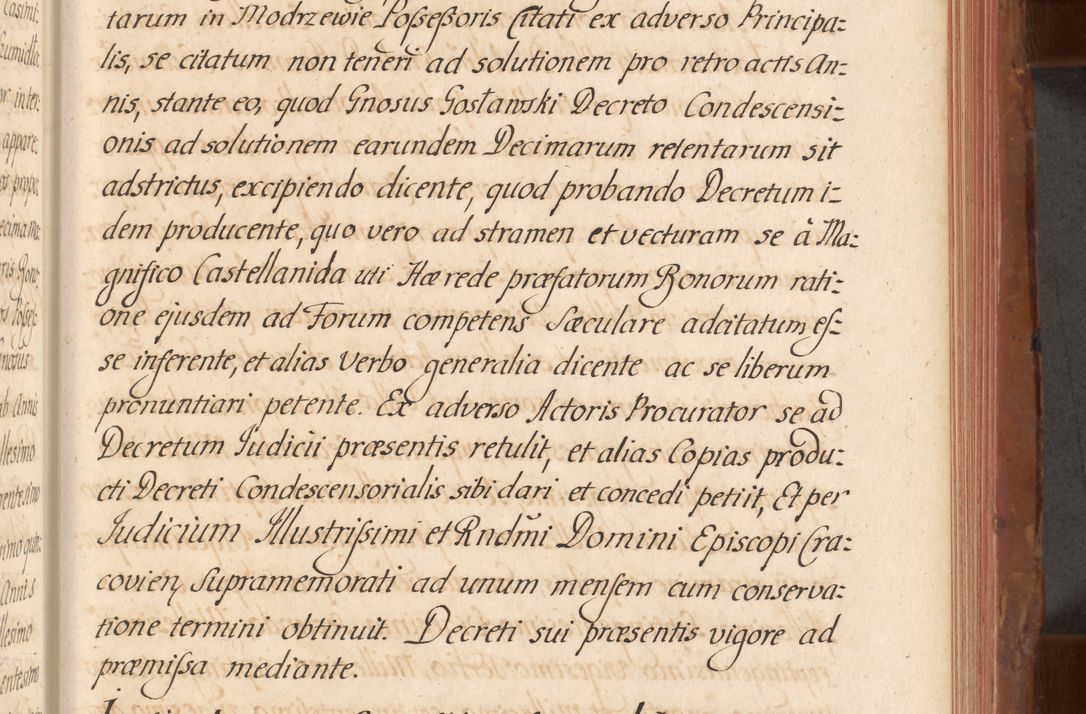 tarum in Modrzewie Poſseſsoris Citati ex adverso Principa:
lis, se citatum non teneri ad solutionem pro retroactis An:
nis, stante eo, quod Gnosus Gosławski Decreto Condescensi:
onis ad solutionem earundem Decimarum retentarum sit
adstrictus, excipiendo dicente, quod probando Decretum i:
dem producente, quo vero ad stramen et vecturam se â Ma:
gnifico Castellanida uti Hærede præfatorum Bonorum rati:
one ejusdem ad Forum competens Sæculare adcitatum eſ:
se inferente, et alias Verbo generalia dicente ac se liberum
pronuntiari petente. Ex adverso Actoris Procurator se ad
Decretum Iudicii præsentis retulit, et alias Copias produ:
cti Decreti Condescensorialis sibi dari et concedi petiit, Et per
Iudicium Illustriſsimi et Rndmi Domini Episcopi Cra:
covien, supramemorati ad unum menſem cum conserva:
tione termini obtinuit. Decreti sui præsentis vigore ad
præmiſsa mediante.